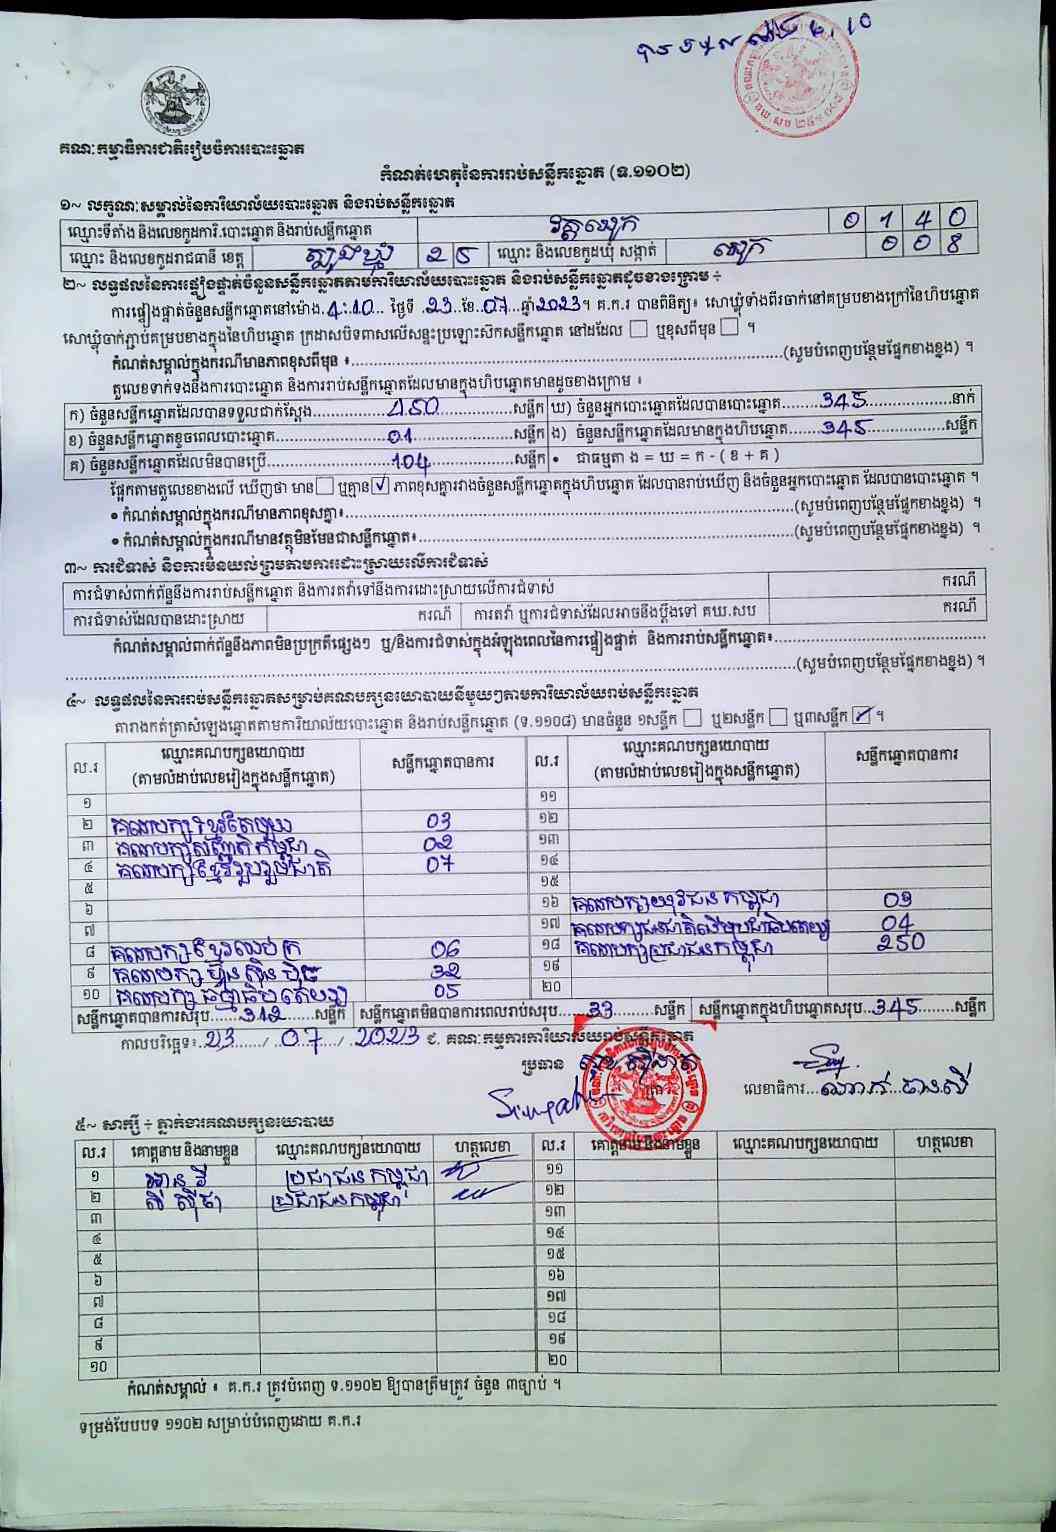 គណៈកម្មាធិការជាតិរៀបចំការបោះឆ្នោត
កំណត់ហេតុនៃការរាប់សន្លឹកឆ្នោត (ទ.១១០២)
១~ លក្ខណៈសម្គាល់នៃការិយាល័យបោះឆ្នោត និងរាប់សន្លឹកឆ្នោត
ឈ្មោះទីតាំង និងលេខកូដការិ.បោះឆ្នោត និងរាប់សន្លឹកឆ្នោត 0 1 4 0
ឈ្មោះ និងលេខកូដរាជធានី ខេត្ត ត្បូងឃ្មុំ 2 5 ឈ្មោះ និងលេខកូដឃុំ សង្កាត់ 0 0 8
២~ លទ្ធផលនៃការផ្ទៀងផ្ទាត់ចំនួនសន្លឹកឆ្នោតតាមការិយាល័យបោះឆ្នោត និងរាប់សន្លឹកឆ្នោតដូចខាងក្រោម ÷
ការផ្ទៀងផ្ទាត់ចំនួនសន្លឹកឆ្នោតនៅម៉ោង 4:10 ថ្ងៃទី 23 ខែ 07 ឆ្នាំ 2023។ គ.ក.រ បានពិនិត្យ៖ សោឃ្លុំទាំងពីរចាក់នៅគម្របខាងក្រៅនៃហិបឆ្នោត
សោឃ្លុំចាក់ភ្ជាប់គម្របខាងក្នុងនៃហិបឆ្នោត ក្រដាសបិទពាសលើសន្ទះប្រឡោះសិកសន្លឹកឆ្នោត នៅដដែល ☐ ឬខុសពីមុន ☐ ។
កំណត់សម្គាល់ក្នុងករណីមានភាពខុសពីមុន ៖ (សូមបំពេញបន្ថែមផ្នែកខាងខ្នង) ។
តួលេខទាក់ទងនឹងការបោះឆ្នោត និងការរាប់សន្លឹកឆ្នោតដែលមានក្នុងហិបឆ្នោតមានដូចខាងក្រោម ៖
ក) ចំនួនសន្លឹកឆ្នោតដែលបានទទួលជាក់ស្តែង 450 សន្លឹក ឃ) ចំនួនអ្នកបោះឆ្នោតដែលបានបោះឆ្នោត 345 នាក់
ខ) ចំនួនសន្លឹកឆ្នោតខូចពេលបោះឆ្នោត 01 សន្លឹក ង) ចំនួនសន្លឹកឆ្នោតដែលមានក្នុងហិបឆ្នោត 345 សន្លឹក
គ) ចំនួនសន្លឹកឆ្នោតដែលមិនបានប្រើ 104 សន្លឹក • ជាធម្មតា ង = ឃ = ក - ( ខ + គ )
ផ្អែកតាមតួលេខខាងលើ ឃើញថា មាន ☐ ឬគ្មាន ☑ ភាពខុសគ្នារវាងចំនួនសន្លឹកឆ្នោតក្នុងហិបឆ្នោត ដែលបានរាប់ឃើញ និងចំនួនអ្នកបោះឆ្នោត ដែលបានបោះឆ្នោត ។
• កំណត់សម្គាល់ក្នុងករណីមានភាពខុសគ្នា៖ (សូមបំពេញបន្ថែមផ្នែកខាងខ្នង) ។
• កំណត់សម្គាល់ក្នុងករណីមានវត្ថុមិនមែនជាសន្លឹកឆ្នោត៖ (សូមបំពេញបន្ថែមផ្នែកខាងខ្នង) ។
៣~ ការជំទាស់ និងការមិនយល់ព្រមតាមការដោះស្រាយលើការជំទាស់
ការជំទាស់ពាក់ព័ន្ធនឹងការរាប់សន្លឹកឆ្នោត និងការតវ៉ាទៅនឹងការដោះស្រាយលើការជំទាស់ ករណី
ការជំទាស់ដែលបានដោះស្រាយ ករណី ការតវ៉ា ឬការជំទាស់ដែលអាចនឹងប្តឹងទៅ គឃ.សប ករណី
កំណត់សម្គាល់ពាក់ព័ន្ធនឹងភាពមិនប្រក្រតីផ្សេងៗ ឬ/និងការជំទាស់ក្នុងអំឡុងពេលនៃការផ្ទៀងផ្ទាត់ និងការរាប់សន្លឹកឆ្នោត៖
(សូមបំពេញបន្ថែមផ្នែកខាងខ្នង) ។
៤~ លទ្ធផលនៃការរាប់សន្លឹកឆ្នោតសម្រាប់គណបក្សនយោបាយនីមួយៗតាមការិយាល័យរាប់សន្លឹកឆ្នោត
តារាងកត់ត្រាសំឡេងឆ្នោតតាមការិយាល័យបោះឆ្នោត និងរាប់សន្លឹកឆ្នោត (ទ.១១០៨) មានចំនួន ១សន្លឹក ☐ ឬ២សន្លឹក ☐ ឬ៣សន្លឹក ☑ ។
ល.រ ឈ្មោះគណបក្សនយោបាយ (តាមលំដាប់លេខរៀងក្នុងសន្លឹកឆ្នោត) សន្លឹកឆ្នោតបានការ ល.រ ឈ្មោះគណបក្សនយោបាយ (តាមលំដាប់លេខរៀងក្នុងសន្លឹកឆ្នោត) សន្លឹកឆ្នោតបានការ
១ ១១
២ គណបក្សខ្មែរតែមួយ 03 ១២
៣ គណបក្សសញ្ជាតិកម្ពុជា 02 ១៣
៤ គណបក្សខ្មែររួបរួមជាតិ 07 ១៤
៥ ១៥
៦ ១៦ គណបក្សយុវជនកម្ពុជា 03
៧ ១៧ គណបក្សជនជាតិដើមប្រជាធិបតេយ្យ 04
៨ គណបក្សខ្មែរឈប់ក្រ 06 ១៨ គណបក្សប្រជាជនកម្ពុជា 250
៩ គណបក្សហ៊្វុនស៊ិនប៉ិច 32 ១៩
១០ គណបក្សធម្មាធិបតេយ្យ 05 ២០
សន្លឹកឆ្នោតបានការសរុប 312 សន្លឹក សន្លឹកឆ្នោតមិនបានការពេលរាប់សរុប 33 សន្លឹក សន្លឹកឆ្នោតក្នុងហិបឆ្នោតសរុប 345 សន្លឹក
កាលបរិច្ឆេទ៖ 23 / 07 / 2023 ជ. គណៈកម្មការការិយាល័យរាប់សន្លឹកឆ្នោត
ប្រធាន
លេខាធិការ
៥~ សាក្សី ÷ ភ្នាក់ងារគណបក្សនយោបាយ
ល.រ គោត្តនាម និងនាមខ្លួន ឈ្មោះគណបក្សនយោបាយ ហត្ថលេខា ល.រ គោត្តនាម និងនាមខ្លួន ឈ្មោះគណបក្សនយោបាយ ហត្ថលេខា
១ ប្រជាជនកម្ពុជា ១១
២ ប្រជាជនកម្ពុជា ១២
៣ ១៣
៤ ១៤
៥ ១៥
៦ ១៦
៧ ១៧
៨ ១៨
៩ ១៩
១០ ២០
កំណត់សម្គាល់ ៖ គ.ក.រ ត្រូវបំពេញ ទ.១១០២ ឱ្យបានត្រឹមត្រូវ ចំនួន ៣ច្បាប់ ។
ទម្រង់បែបបទ ១១០២ សម្រាប់បំពេញដោយ គ.ក.រ